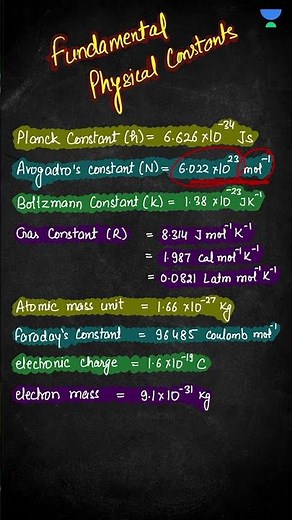 Fundamental
Physical Constants
Planck Constant (ħ) = 6.626 × 10⁻³⁴ Js
Avogadro's constant (N) = 6.022 × 10²³ mol⁻¹
Boltzmann Constant (K) = 1.38 × 10⁻²³ JK⁻¹
Gas Constant (R) = 8.314 J mol⁻¹ K⁻¹
= 1.987 Cal mol⁻¹ K⁻¹
= 0.0821 Latm mol⁻¹ K⁻¹
Atomic mass unit = 1.66 × 10⁻²⁷ Kg
Faraday's Constant = 96485 Coulomb mol⁻¹
electronic charge = 1.6 × 10⁻¹⁹ C
electron mass = 9.1 × 10⁻³¹ Kg